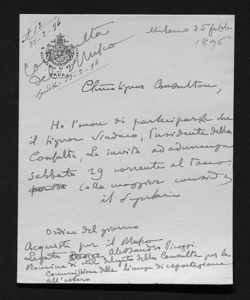 Consulta
del Museo
Milano 25 febb
1896
Chmo Signor Consultore,
Ho l'onore di parteciparle che
il Signor Sindaco, Presidente della
Consulta, La invita ad adunanza
sabbato 29 corrente al tocco.
Colla maggior consid
il Segretario
Ordine del giorno
Acquisti per il Museo
Legato Alessandro
Nomina di un delegato della Consulta per la
Commissione della licenza di esportazione
all'estero